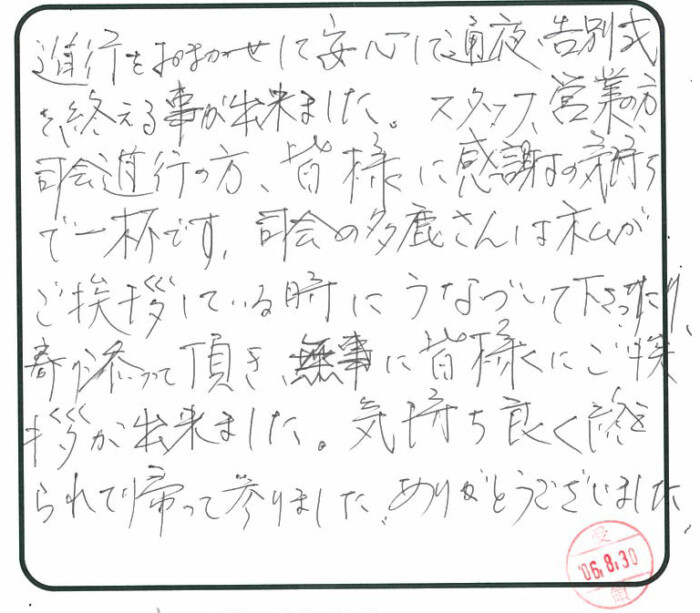 進行をおまかせして安心して通夜、告別式
を終える事が出来ました。スタッフ、営業の方
司会進行の方、皆様に感謝の気持ち
で一杯です。司会の多鹿さんは私が
ご挨拶している時にうなづいて下さったり、
寄り添って頂き、無事に皆様にご挨
拶が出来ました。気持ち良く終え
られて帰って参りました。ありがとうございました。
受
'06.8.30
領